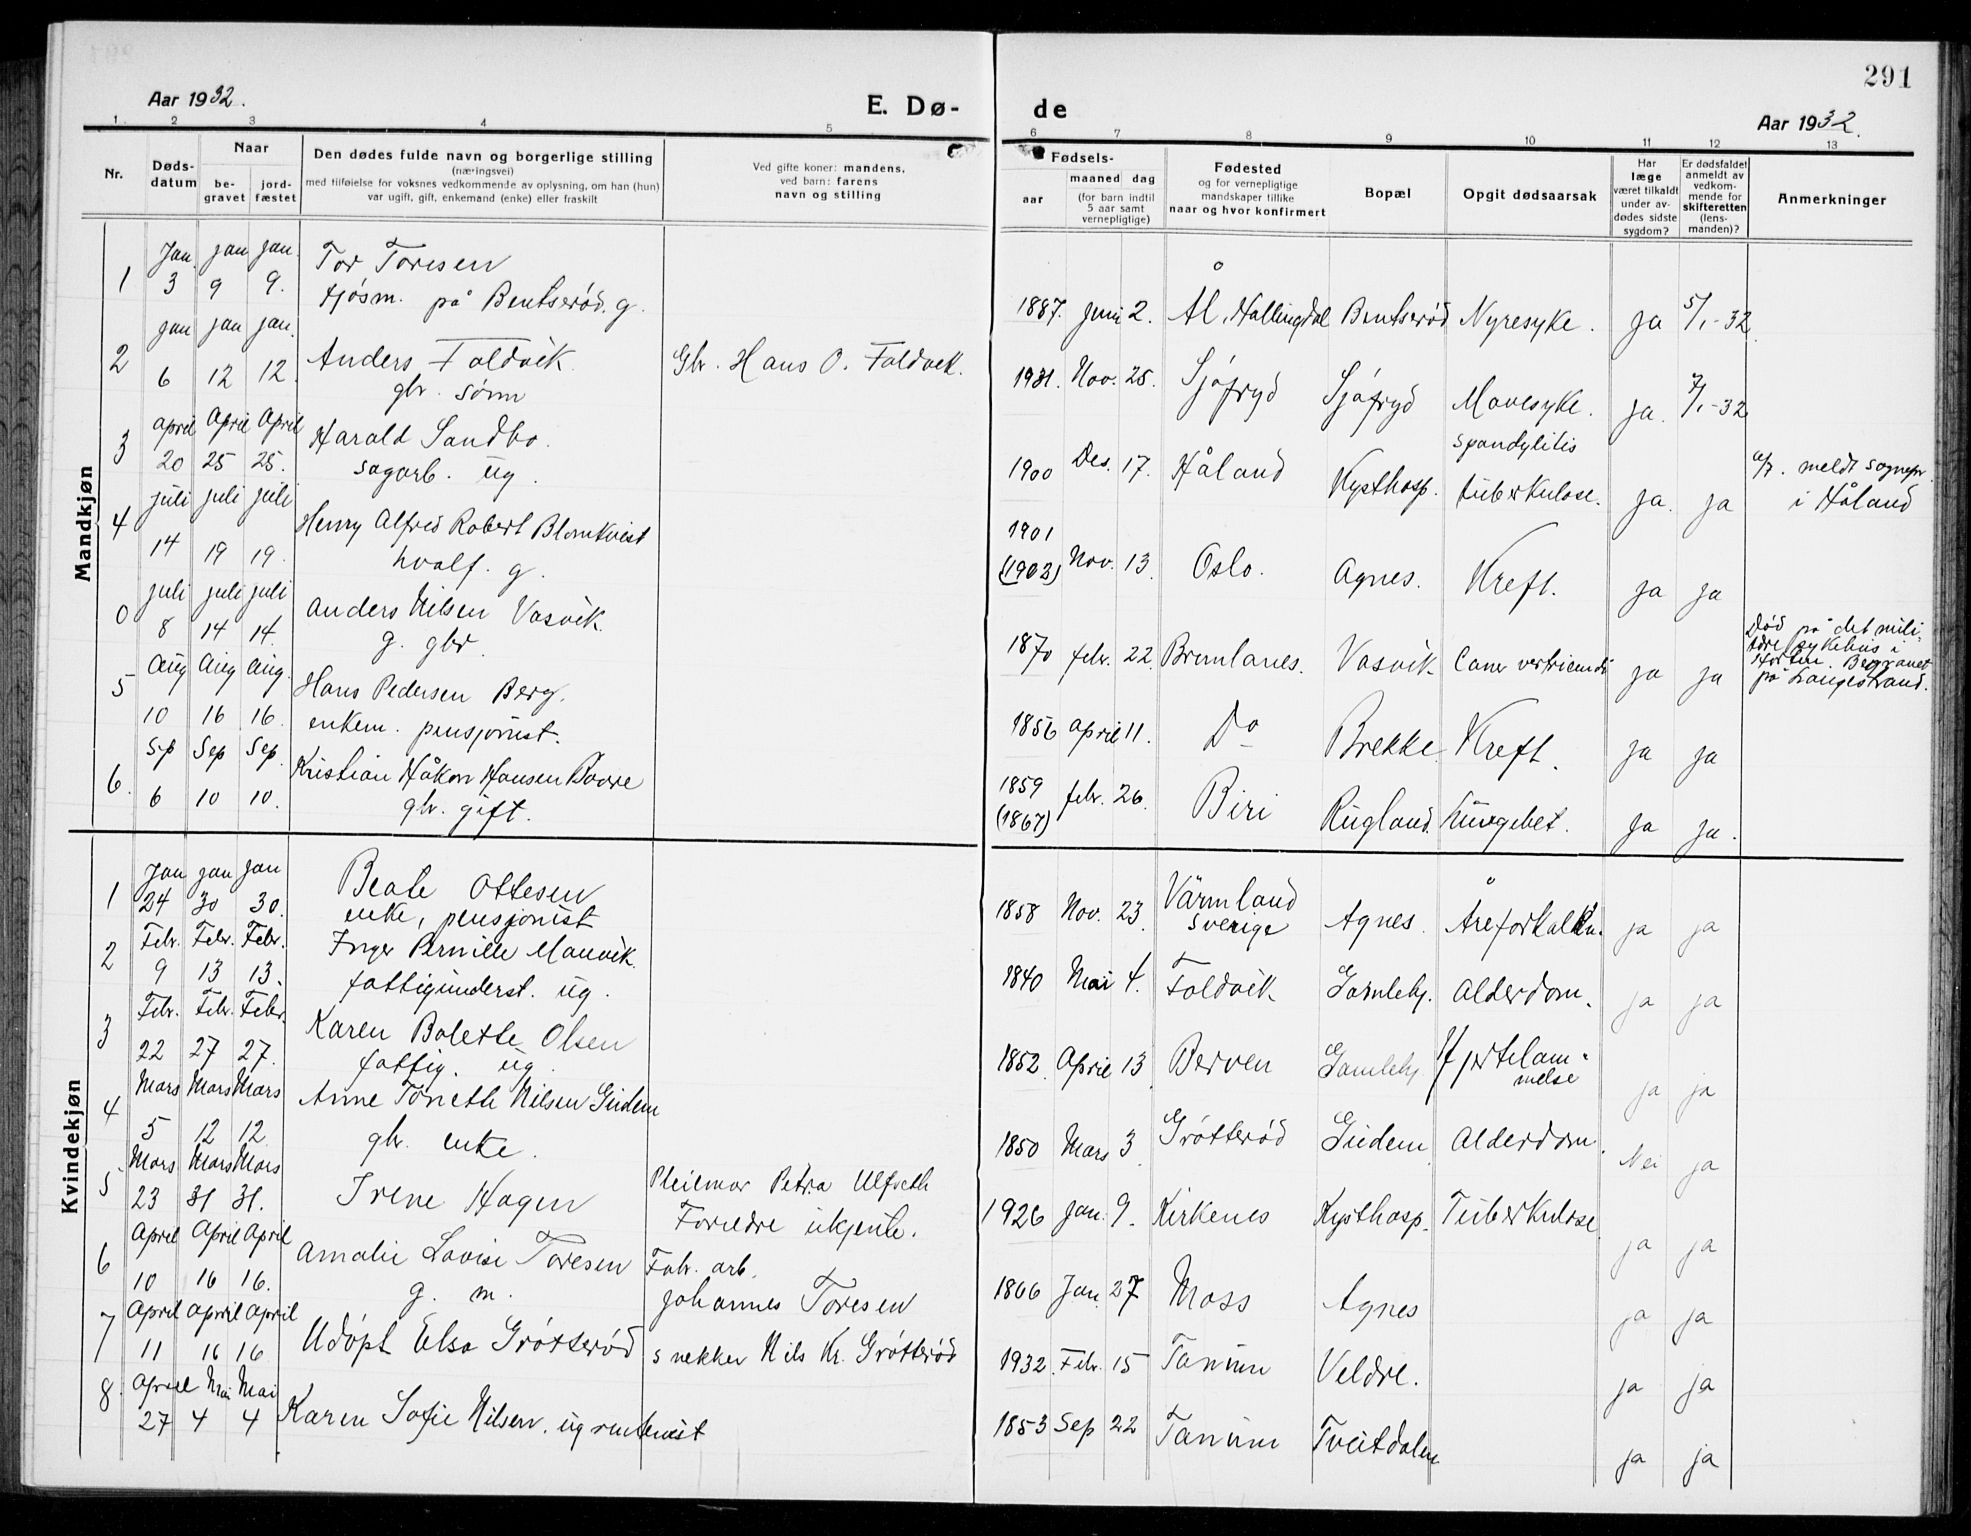 291
Aar 1932.
E. Dø-
de
Aar 1932.
1 2 3 4 5 6 7 8 9 10 11 12 13
Nr.
Døds-
datum
Naar
be-
gravet
jord-
fæstet
Den dødes fulde navn og borgerlige stilling
(næringsvei)
med tilføielse for voksnes vedkommende av oplysning, om han (hun)
var ugift, gift, enkemand (enke) eller fraskilt
Ved gifte koner: mandens,
ved barn: farens
navn og stilling
Fødsels-
aar
maaned dag
(for barn indtil
5 aar samt
vernepligtige)
Fødested
og for vernepligtige
mandskaper tillike
naar og hvor konfirmert
Bopæl
Opgit dødsaarsak
Har
læge
været tilkaldt
under av-
dødes sidste
sygdom?
Er dødsfaldet
anmeldt av
vedkom-
mende for
skifteretten
(lens-
manden)?
Anmerkninger
Mandkjøn
Jan. jan jan. Tor Toresen
1 3 9 9. fjøsm. på Bentserød. g. 1887. Juni 2. Ål, Hallingdal Bentserød Nyresyke. ja 5/1-32
jan jan jan.
2 6 12 12. Anders Foldvik Gbr. Hans O. Foldvik. 1931. Nov. 25. Sjøfryd Sjøfryd Mavesyke. ja. 7/1-32
gbr. sønn
april April April Harald Sandbo.
3 20 25 25. sagarb. ug. 1900 Des. 17. Håland Kysthosp. spondylitis
tuberkulose. ja. ja meldt sognepr.
i Håland
juli juli juli
4 14 19 19. Henry Alfred Robert Blomkvist 1901
(1902) Nov. 13. Oslo. Agnes. Kreft. ja ja
hvalf. g.
juli juli juli
0 8 14 14. Anders Nilsen Vasvik. 1870 febr. 22. Brunlanes. Vasvik Cancer ja ja Død på det mili-
tære sykehus i
Horten. Begravet
på Langestrand.
g. gbr.
Aug Aug Aug.
5 10 16 16. Hans Pedersen Berg. 1856 april 11. Do Brekke Kreft. ja ja
enkem. pensjonist.
Sep Sep Sep.
6. 6 10 10. Kristian Håkon Hansen 1859
(1867) febr. 26. Biri Rugland. Lungebet. ja ja.
gbr. gift.
Kvindekjøn
Jan jan jan
1 24 30 30. Beate Ottesen 1858 Nov. 23. Värmland
Sverige Agnes. Åreforkalkn. ja ja
enke, pensjonist
Febr. Febr. Febr.
2 9 13 13. Inger Pernille Manvik. 1840 Mai 4. Foldvik Gamlehj. Alderdom. ja ja
fattigunderst. ug.
Febr. Febr. Febr.
3 22 27 27. Karen Bolette Olsen 1852. April 13 Berven Gamlehj. Hjertelam-
melse ja ja
fattig. ug.
Mars Mars Mars
4 5 12 12. Anne Tonette Nilsen Gudem 1850 Mars 3. Grøtterød Gudem Alderdom. Nei ja
gbr. enke.
Mars Mars Mars
5 23 31 31. Irene Hagen Pleiemor Petra Ulfseth
Foreldre ukjente. 1926 Jan. 9. Kirkenes Kysthosp. Tuberkulose ja ja
April April April
6 10 16 16. Amalie Lovise Toresen Fabr. arb.
Johannes Toresen 1866 Jan. 27 Moss Agnes ja ja
g. m.
April April April
7 11 16 16 Udøpt Elsa Grøtterød snekker Nils Kr. Grøtterød 1932. Febr. 15 Tanum Veldre. ja ja
April Mai Mai
8. 27 4 4 Karen Sofie Nilsen. ug rentenist 1853 Sep 22 Tanum Tveitdalen ja ja